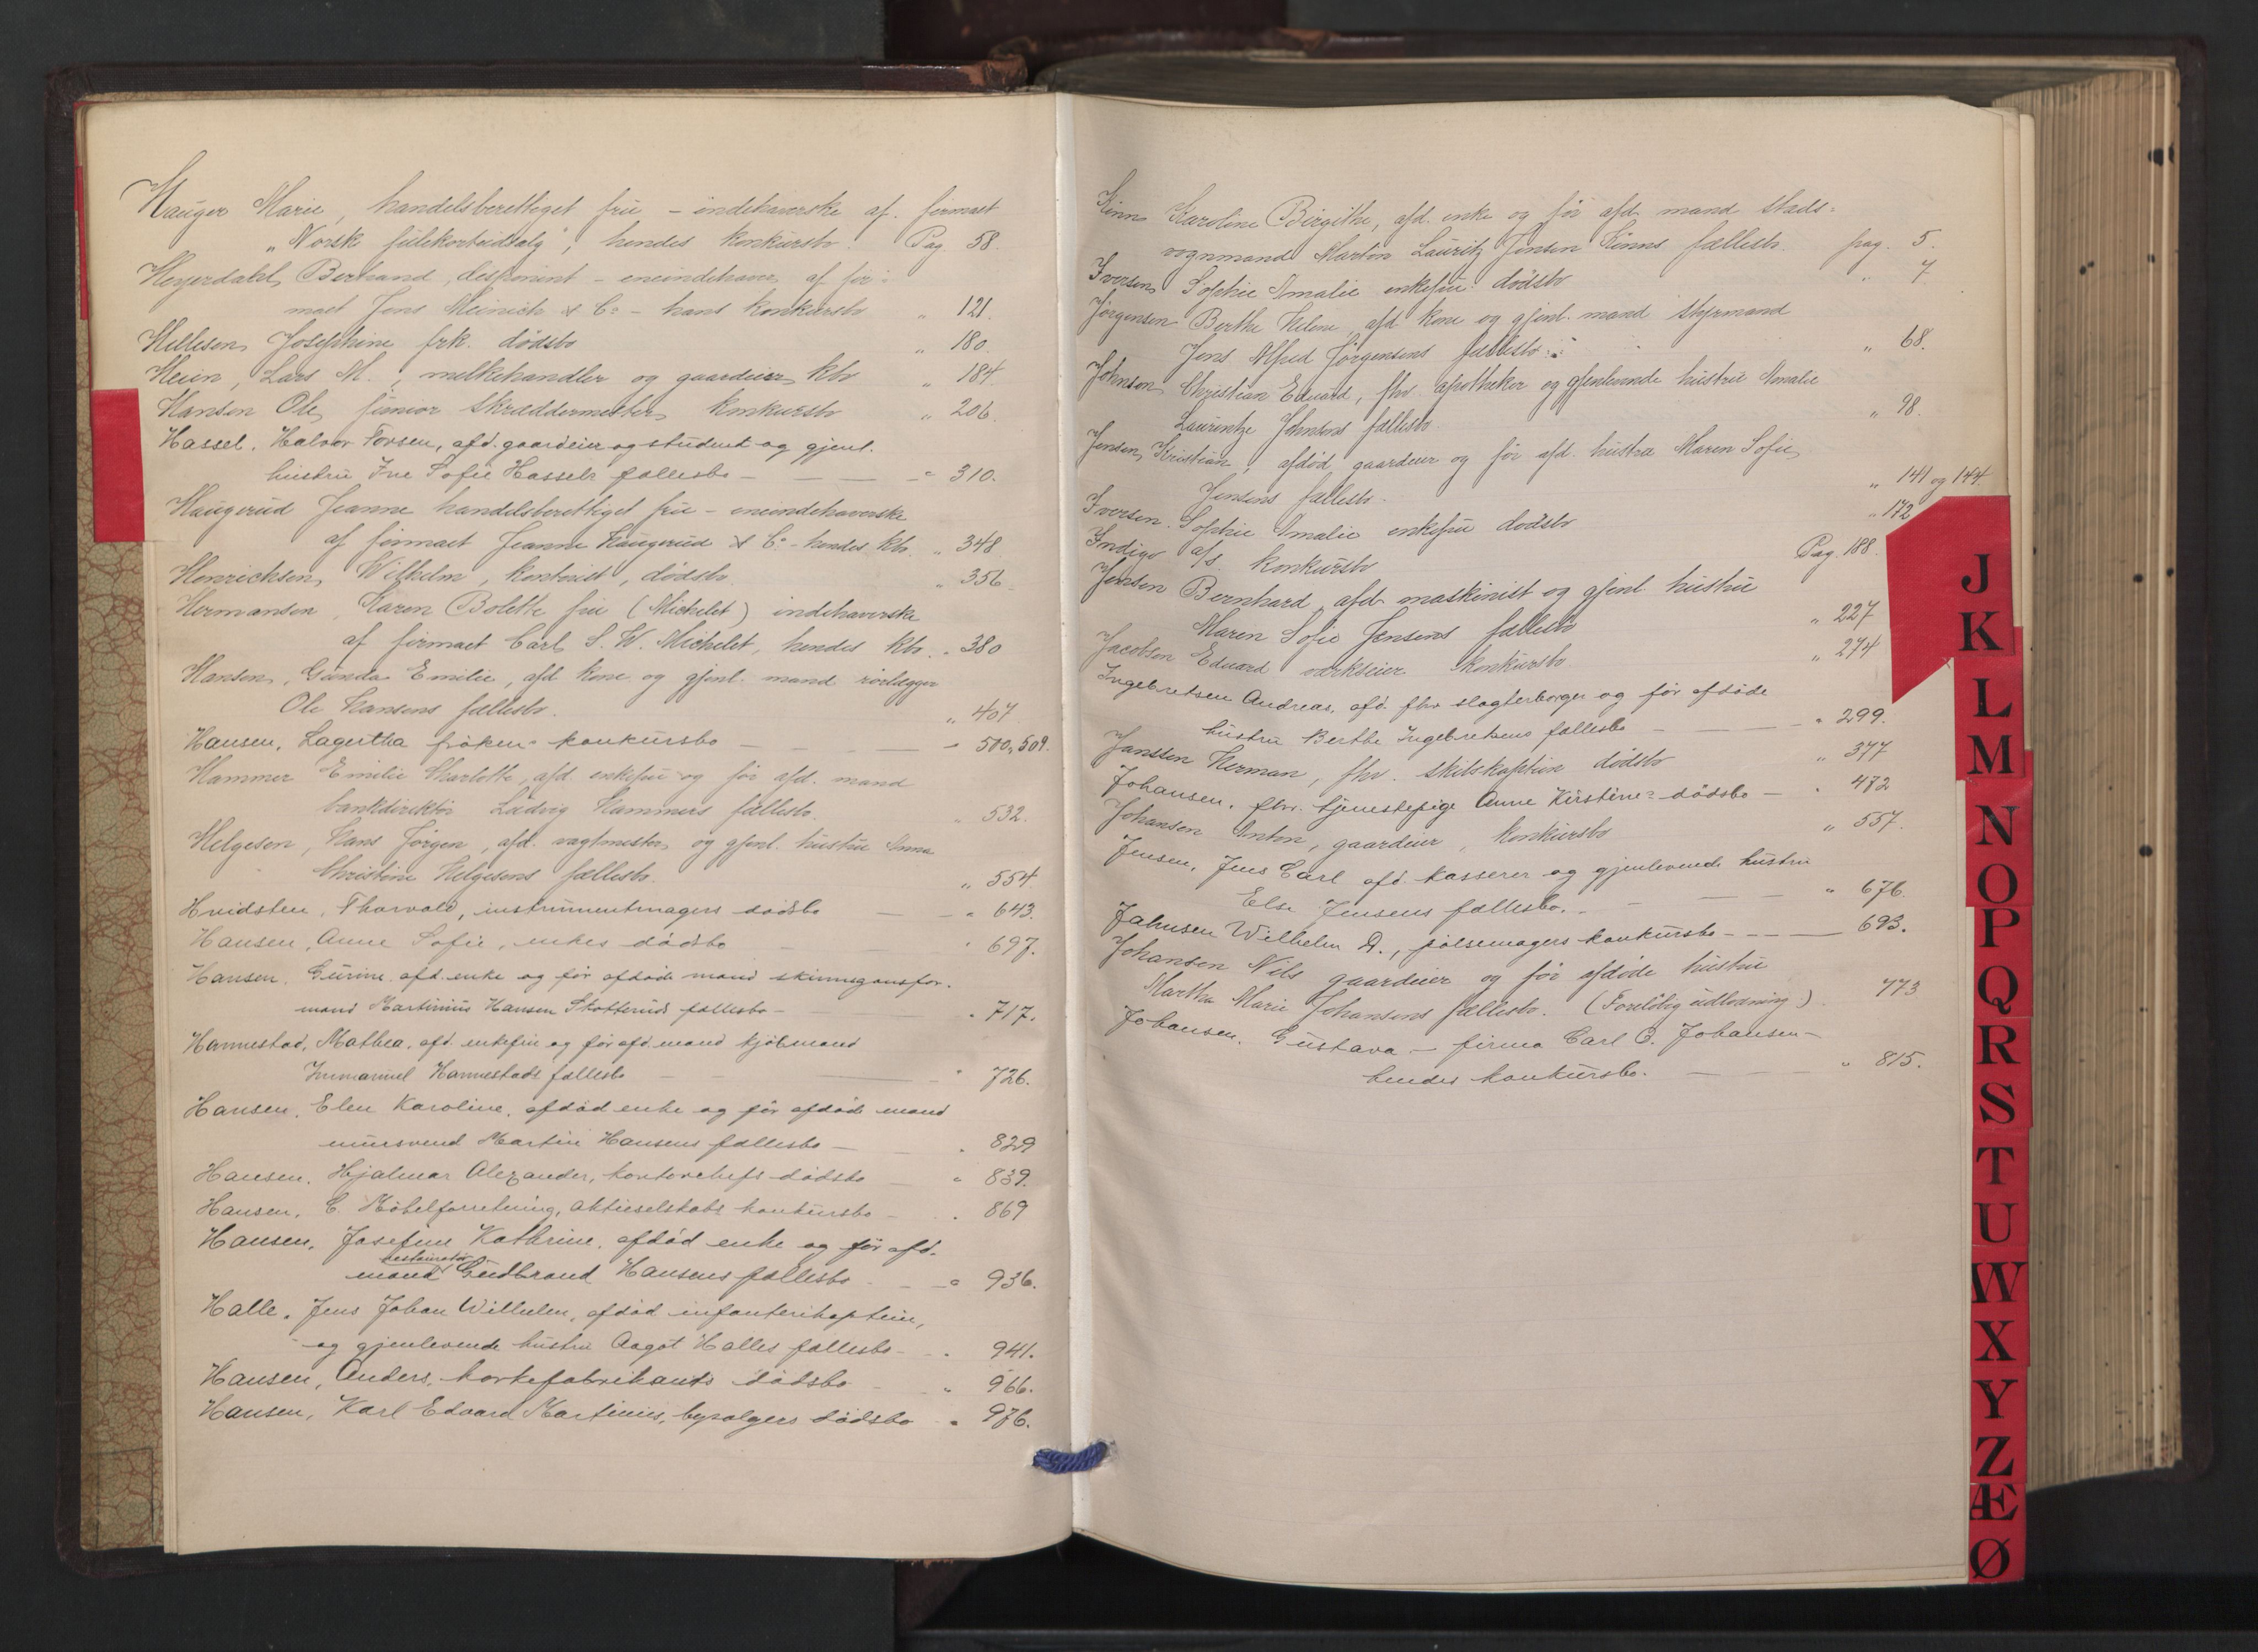 Hauger Marie, handelsberettiget frue – indehaverske af firmaet
„Norsk julekortudsalg", hendes konkursbo. Pag. 58.
Heyerdahl, Bernhard, disponent – eneindehaver af fir-
maet Jens Meinich & Co – hans konkursbo „ 121.
Hellesen, Josephine frk. dødsbo „ 180.
Heien, Lars M., melkehandler og gaardeier, kbo „ 184
Hansen Ole, junior skræddermester, konkursbo „ 206.
Hassel, Halvor Torsen, afd. gaardeier og student og gjenl.
hustru Ine Sofie Hassels fællesbo — — — „ 310.
Haugerud Jeanne handelsberettiget frue – eneindehaverske
af firmaet Jeanne Haugerud & Co – hendes kbo. „ 348
Henricksen, Wilhelm, kontorist, dødsbo. „ 356
Hermansen, Karen Bolette frue (Michelet) indehaverske
af firmaet Carl S. W. Michelet, hendes kbo. „ 380
Hansen, Gunda Emilie, afd. kone og gjenl. mand rørlægger
Ole Hansens fællesbo. „ 407
Hansen, Lagertha frøken konkursbo — — — „ 500, 509.
Hammer Emilie Charlotte, afd. enkefrue og før afd. mand
bankdirektør Ludvig Hammers fællesbo. „ 532.
Helgesen, Hans Jørgen, afd. vagtmester og gjenl. hustru Anna
Christine Helgesens fællesbo. „ 554.
Hvidsten, Thorvald, instrumentmagers dødsbo — — „ 643.
Hansen, Anne Sofie, enkes dødsbo — „ 697.
Hansen, Gurine, afd. enke og før afdøde mand skinnegangsfor-
mand Martinius Hansen Skotteruds fællesbo — „ 717.
Hannestad, Mathea, afd. enkefrue og før afd. mand kjøbmand
Immanuel Hannestads fællesbo — — „ 726.
Hansen, Elen Karoline, afdød enke og før afdøde mand
mursvend Martin Hansens fællesbo — „ 829
Hansen, Hjalmar Alexander, kontorchefs dødsbo — „ 839.
Hansen, C. Møbelforretning, aktieselskabs konkursbo – „ 869
Hansen, Josefine Kathrine, afdød enke og før afd.
restauratør
mand Gudbrand Hansens fællesbo — „ 936.
Halle, Jens Johan Wilhelm, afdød infanterikaptein,
og gjenlevende hustru Aagot Halles fællesbo — „ 941.
Hansen, Anders, korkefabrikants dødsbo – „ 966.
Hansen, Karl Edvard Martinius, bysælgers dødsbo „ 976.
Jinns Karoline Birgithe, afd. enke og før afd. mand stads-
vognmand Martin Lauritz Jensen Jinns fællesbo. pag. 5.
Iversen, Sophie Amalie enkefrue dødsbo „ 7
Jørgensen Berthe Helene, afd. kone og gjenl. mand styrmand
Jens Alfred Jørgensens fællesbo. „ 68.
Johnson, Christian Eduard, fhv. apotheker og gjenlevende hustru Amalie
Laurentze Johnsons fællesbo. „ 98.
Jensen, Kristian, afdød gaardeier og før afd. hustru Maren Sofie
Jensens fællesbo. „ 141 og 144.
Iversen. Sophie Amalie enkefrue dødsbo „ 172
Indigo a/s. konkursbo Pag. 188.
Jensen Bernhard, afd. maskinist og gjenl. hustru
Maren Sofie Jensens fællesbo „ 227
Jacobsen Eduard værkseier konkursbo. „ 274
Ingebretsen Andreas, afd. fhv. slagterborger og før afdøde
hustru Berthe Ingebretsens fællesbo — — „ 299.
Janssen Herman, fhv. skibskaptein dødsbo „ 377
Johansen, fhv. tjenestepige Anne Kirstine: dødsbo — „ 472
Johansen Anton, gaardeier, konkursbo „ 557.
Jensen, Jens Carl afd. kasserer og gjenlevende hustru
Else Jensens fællesbo. — — — „ 676.
Jahnsen Wilhelm A., pølsemagers konkursbo — — — 693.
Johansen Nils gaardeier og før afdøde hustru
Martha Marie Johansens fællesbo. (Foreløbig udlodning) 773
Johansen, Gustava – firma Carl O. Johansen –
hendes konkursbo. — — — „ 815.
J
K
L
M
N
O
P
Q
R
S
T
U
W
X
Y
Z
Æ
Ø